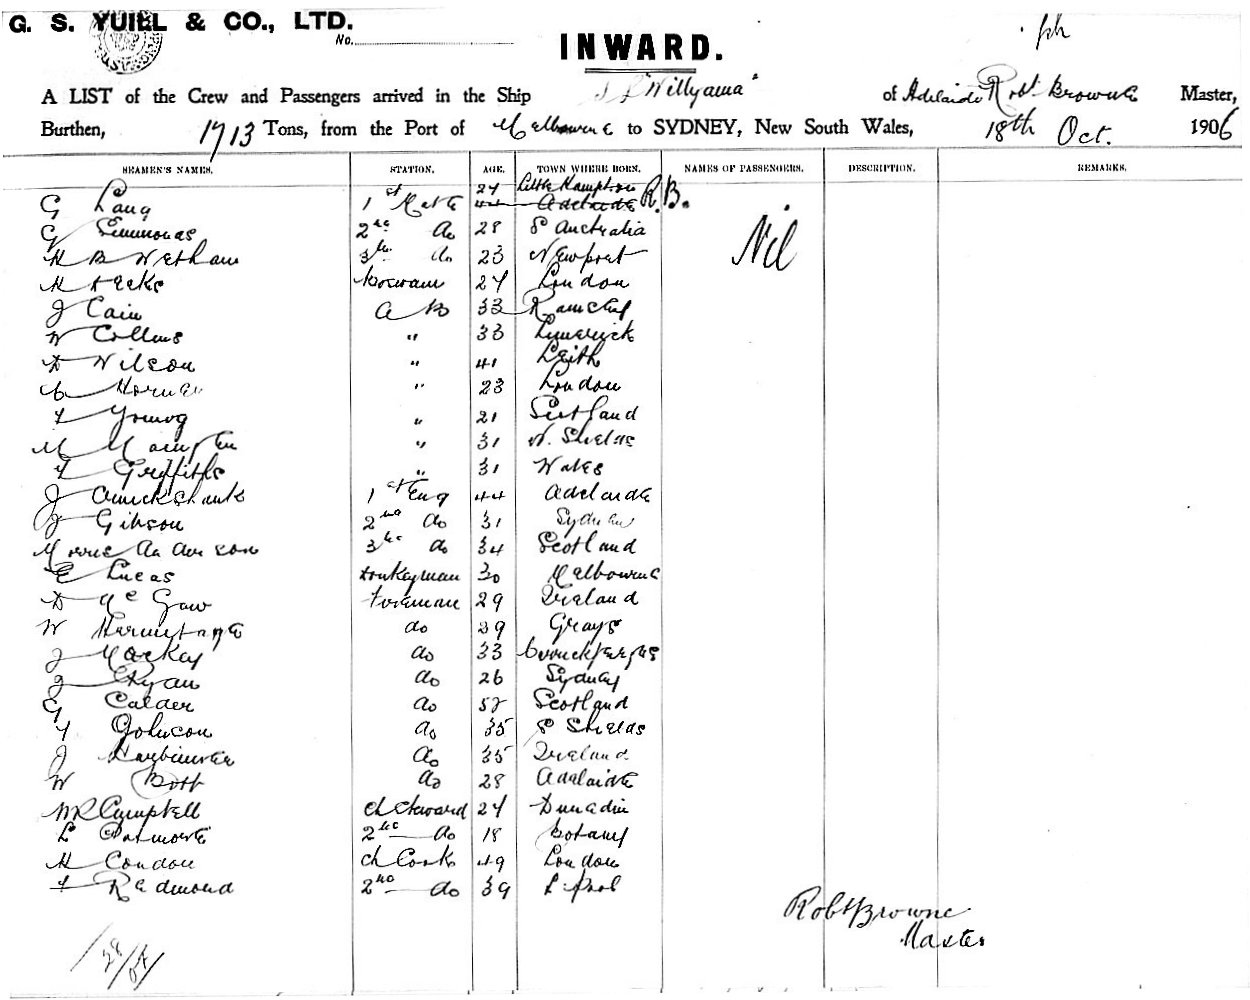 G. S. YUILL & CO., LTD.
No.
INWARD.
A LIST of the Crew and Passengers arrived in the Ship "Willyama" of Adelaide Robt Browne Master,
Burthen, 1713 Tons, from the Port of Melbourne to SYDNEY, New South Wales, 18th Oct. 1906
SEAMEN'S NAMES. STATION. AGE. TOWN WHERE BORN. NAMES OF PASSENGERS. DESCRIPTION. REMARKS.
27 Little Hampton
G Lang 1st Mate 44 Adelaide R.B.
G Simmonds 2nd do 28 S Australia
Nil
H B Wetham 3rd do 23 Newport
H Hecks Boswain 27 London
J Cain A B 33
W Collins " 33 Limerick
D Wilson " 41 Leith
C Horner " 23 London
F Young " 21 Scotland
M " 31 N. Shields
F Griffiths " 31 Wales
J Cruickshank 1st Eng 44 Adelaide
J Gibson 2nd do 31 Sydney
Anderson 3rd do 34 Scotland
E Lucas Donkeyman 30 Melbourne
D McGaw Fireman 29 Ireland
W Hermitage do 39 Grays
J Mackey do 33 Carrickfergus
J Ryan do 26 Sydney
G Calder do 52 Scotland
F Johnson do 35 S Shields
J do 35 Ireland
W Bott do 28 Adelaide
WR Campbell Ch Steward 27 Dunedin
L 2nd do 18 Botany
H Condon Ch Cook 49 London
F Redmond 2nd do 39 L'pool
Robt Browne
Master